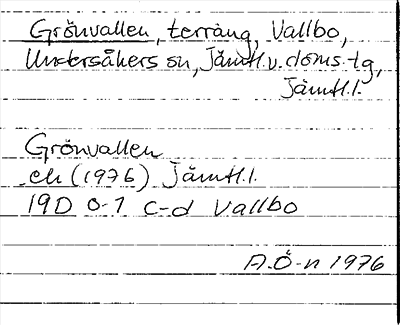 Grönvallen, terräng, Vallbo,
Undersåkers sn, Jämtl.v.doms.tg,
Jämtl.l.
Grönvallen
ek (1976) Jämtl.l.
19D 0-1 c-d Vallbo
A.Ö-n 1976